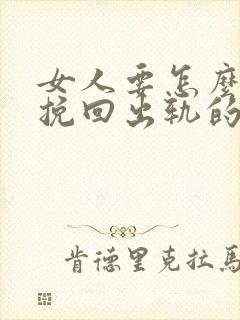 女人要怎麼
挽回出軌的
肯德里克拉馬